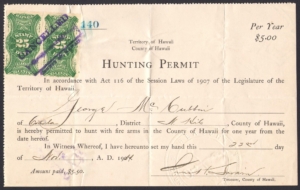 140
Per Year
$5.00
Territory of Hawaii
County of Hawaii
HUNTING PERMIT
In accordance with Act 116 of the Session Laws of 1907 of the Legislature of the
Territory of Hawaii.
George Mc
of District County of Hawaii
is hereby permitted to hunt with fire arms in the County of Hawaii for one year from the
date hereof.
In Witness Whereof, I have hereunto set my hand this 22d
day of A. D. 19
Amount paid, $5.00.
Treasurer, County of Hawaii.